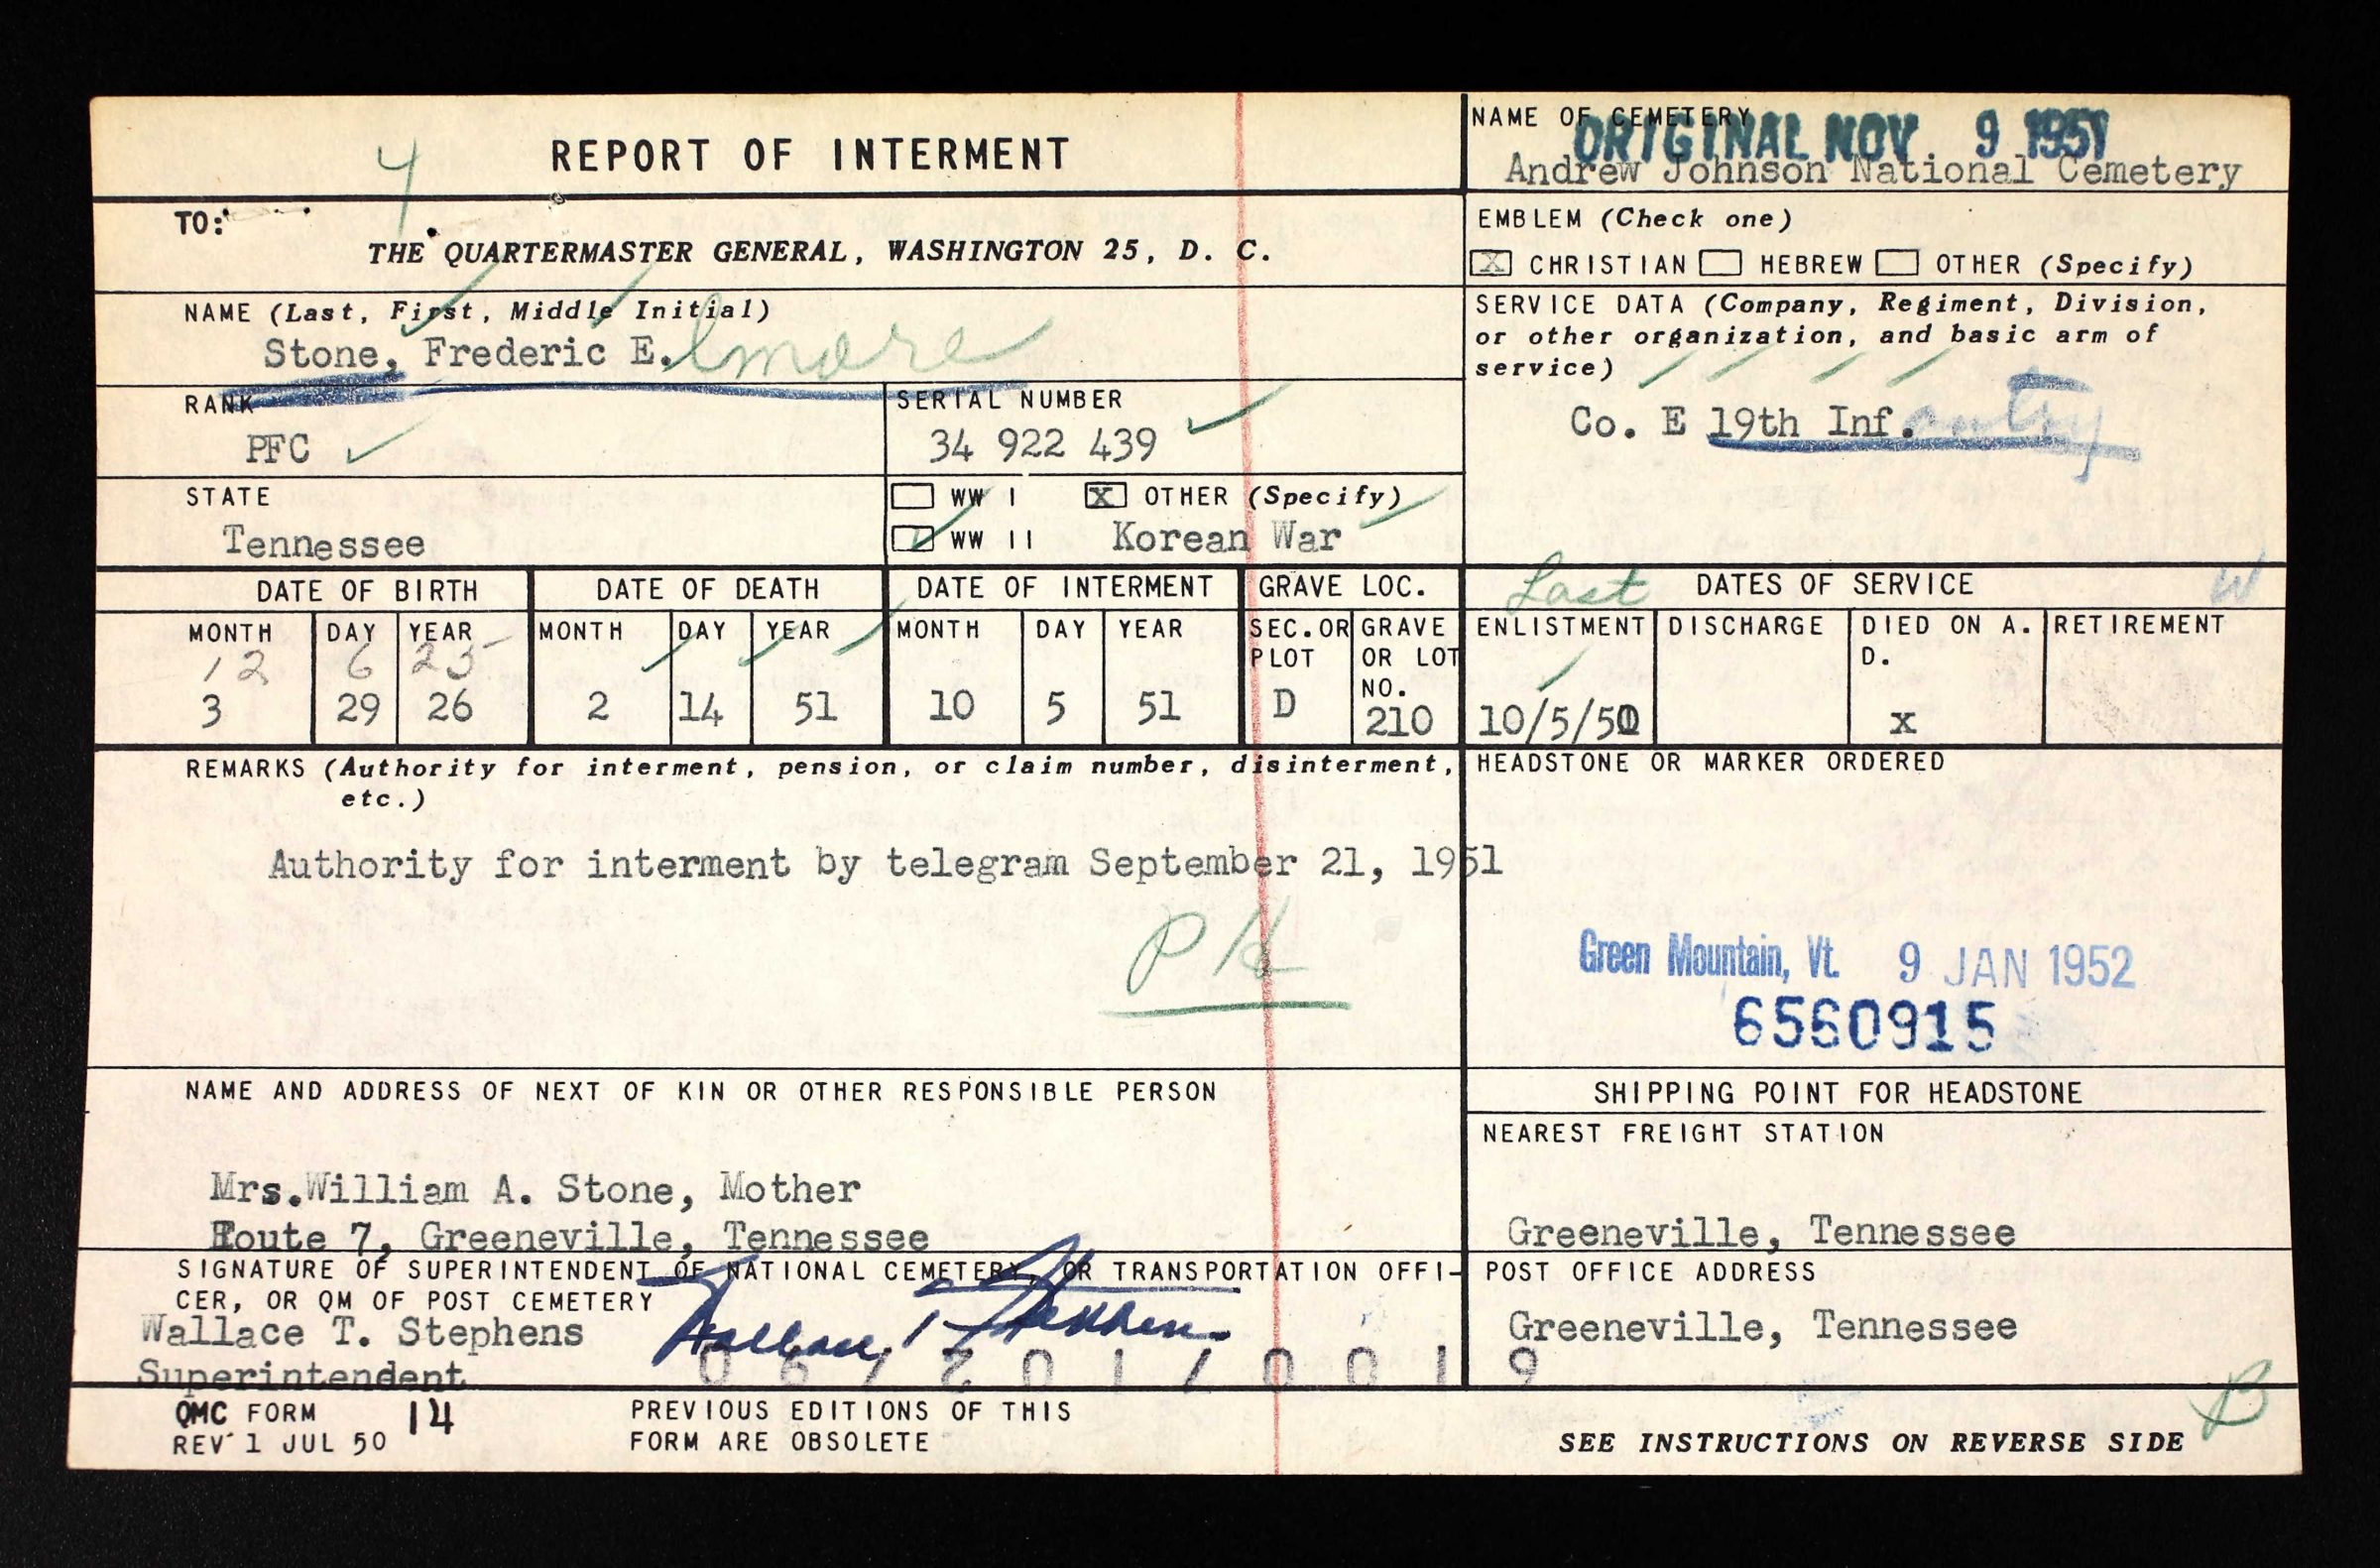 REPORT OF INTERMENT
4
NAME OF CEMETERY
ORIGINAL NOV 9 1951
Andrew Johnson National Cemetery
TO:
THE QUARTERMASTER GENERAL, WASHINGTON 25, D. C.
EMBLEM (Check one)
X CHRISTIAN HEBREW OTHER (Specify)
NAME (Last, First, Middle Initial)
Stone, Frederic E.lmore
SERVICE DATA (Company, Regiment, Division,
or other organization, and basic arm of
service)
Co. E 19th Inf.antry
RANK
PFC
SERIAL NUMBER
34 922 439
STATE
Tennessee
WW I X OTHER (Specify)
WW II Korean War
DATE OF BIRTH DATE OF DEATH DATE OF INTERMENT GRAVE LOC. Last DATES OF SERVICE W
MONTH DAY YEAR MONTH DAY YEAR MONTH DAY YEAR SEC.OR PLOT GRAVE OR LOT NO. ENLISTMENT DISCHARGE DIED ON A. D. RETIREMENT
12 6 25
3 29 26 2 14 51 10 5 51 D 210 10/5/50 x
REMARKS (Authority for interment, pension, or claim number, disinterment,
etc.)
Authority for interment by telegram September 21, 1951
PH
HEADSTONE OR MARKER ORDERED
Green Mountain, Vt. 9 JAN 1952
6560915
NAME AND ADDRESS OF NEXT OF KIN OR OTHER RESPONSIBLE PERSON
Mrs.William A. Stone, Mother
Route 7, Greeneville, Tennessee
SHIPPING POINT FOR HEADSTONE
NEAREST FREIGHT STATION
Greeneville, Tennessee
SIGNATURE OF SUPERINTENDENT OF NATIONAL CEMETERY, OR TRANSPORTATION OFFI-
CER, OR QM OF POST CEMETERY
Wallace T. Stephens
Superintendent
Wallace T Stephens
POST OFFICE ADDRESS
Greeneville, Tennessee
QMC FORM 14
REV 1 JUL 50
PREVIOUS EDITIONS OF THIS
FORM ARE OBSOLETE
SEE INSTRUCTIONS ON REVERSE SIDE
B